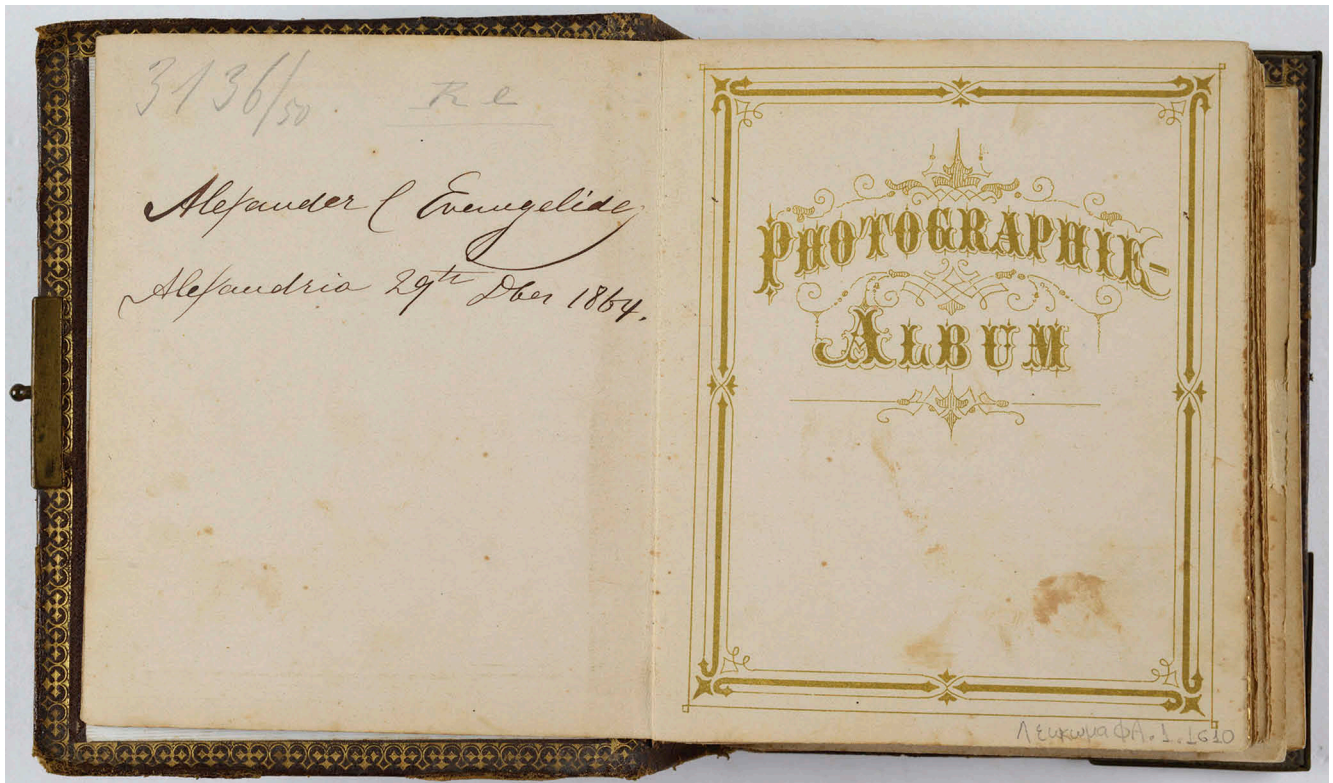 3136/50. R e
Alexander C Evangelides
Alexandria 29th Dber 1864.
PHOTOGRAPHIE-
ALBUM
Λεύκωμα ΦΑ.1.1610